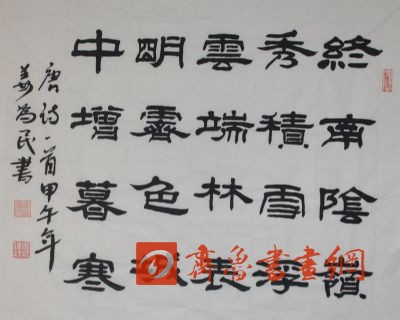 終南陰嶺
秀積雪浮
雲端林表
明霽色城
中增暮寒
唐诗一首甲午年
姜为民書
齊魯書畫網